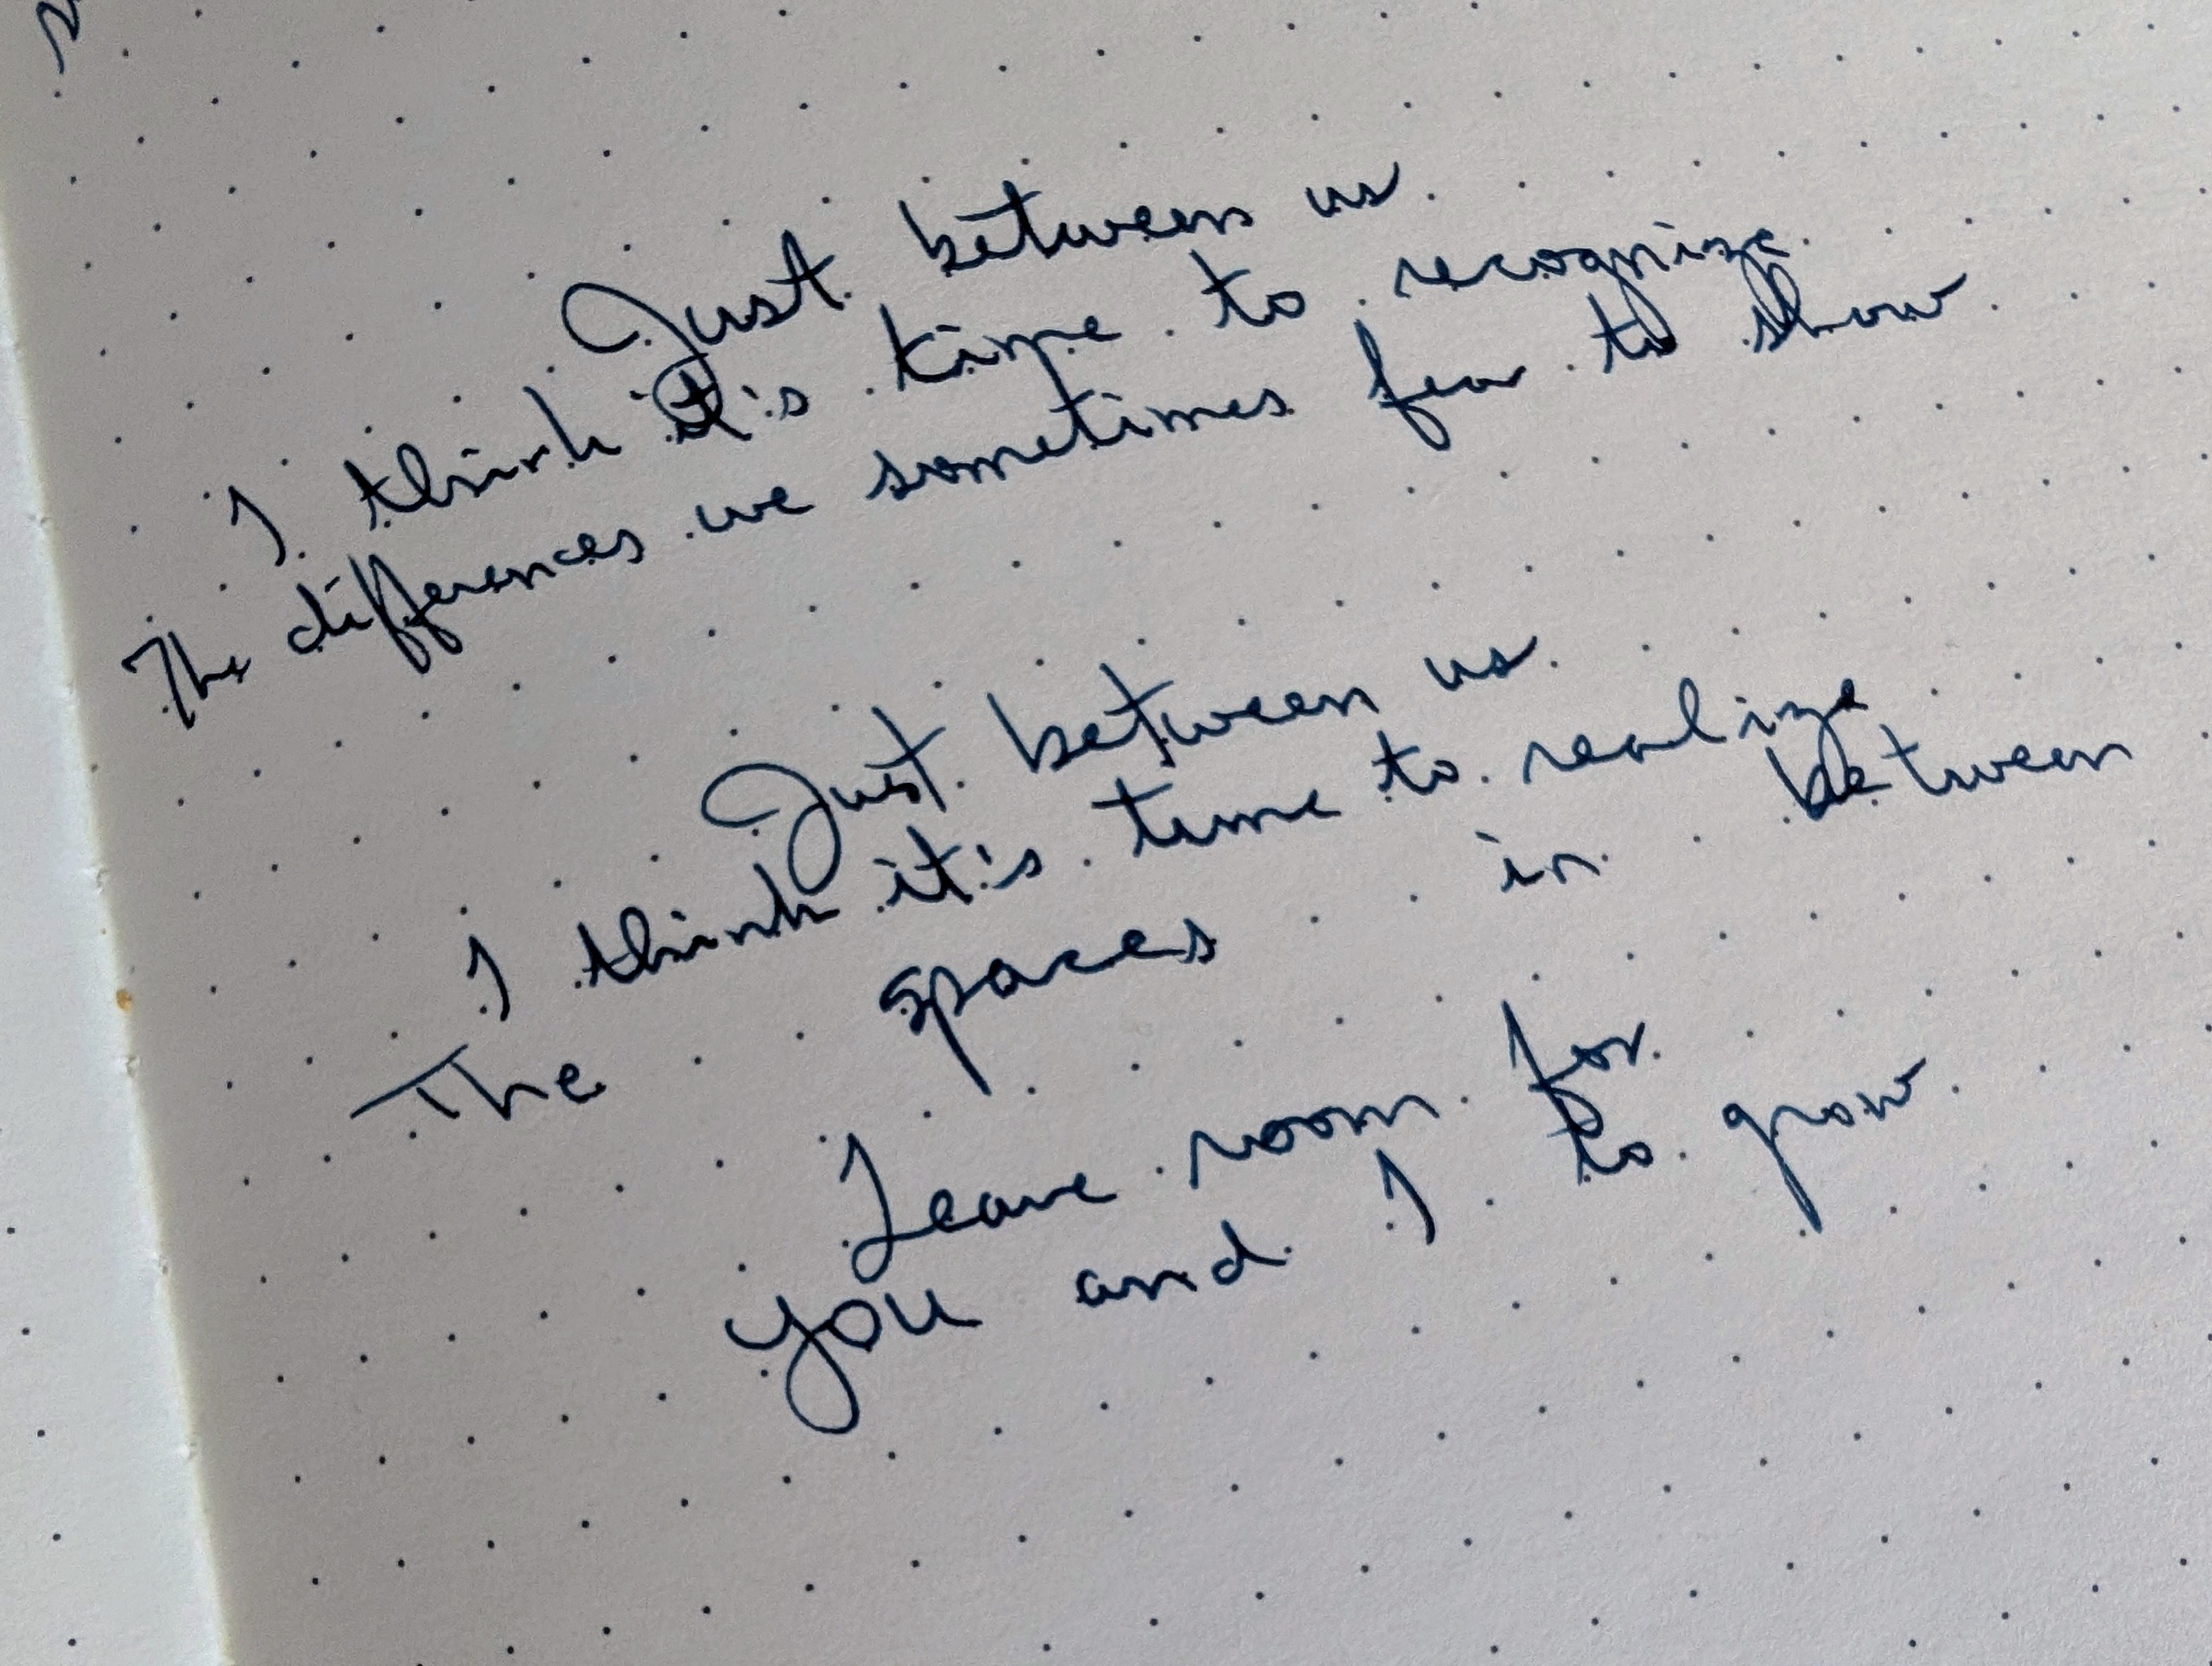 Just between us
I think it's time to recognize
The differences we sometimes fear to show
Just between us
I think it's time to realize
The spaces in between
Leave room for
you and I to grow